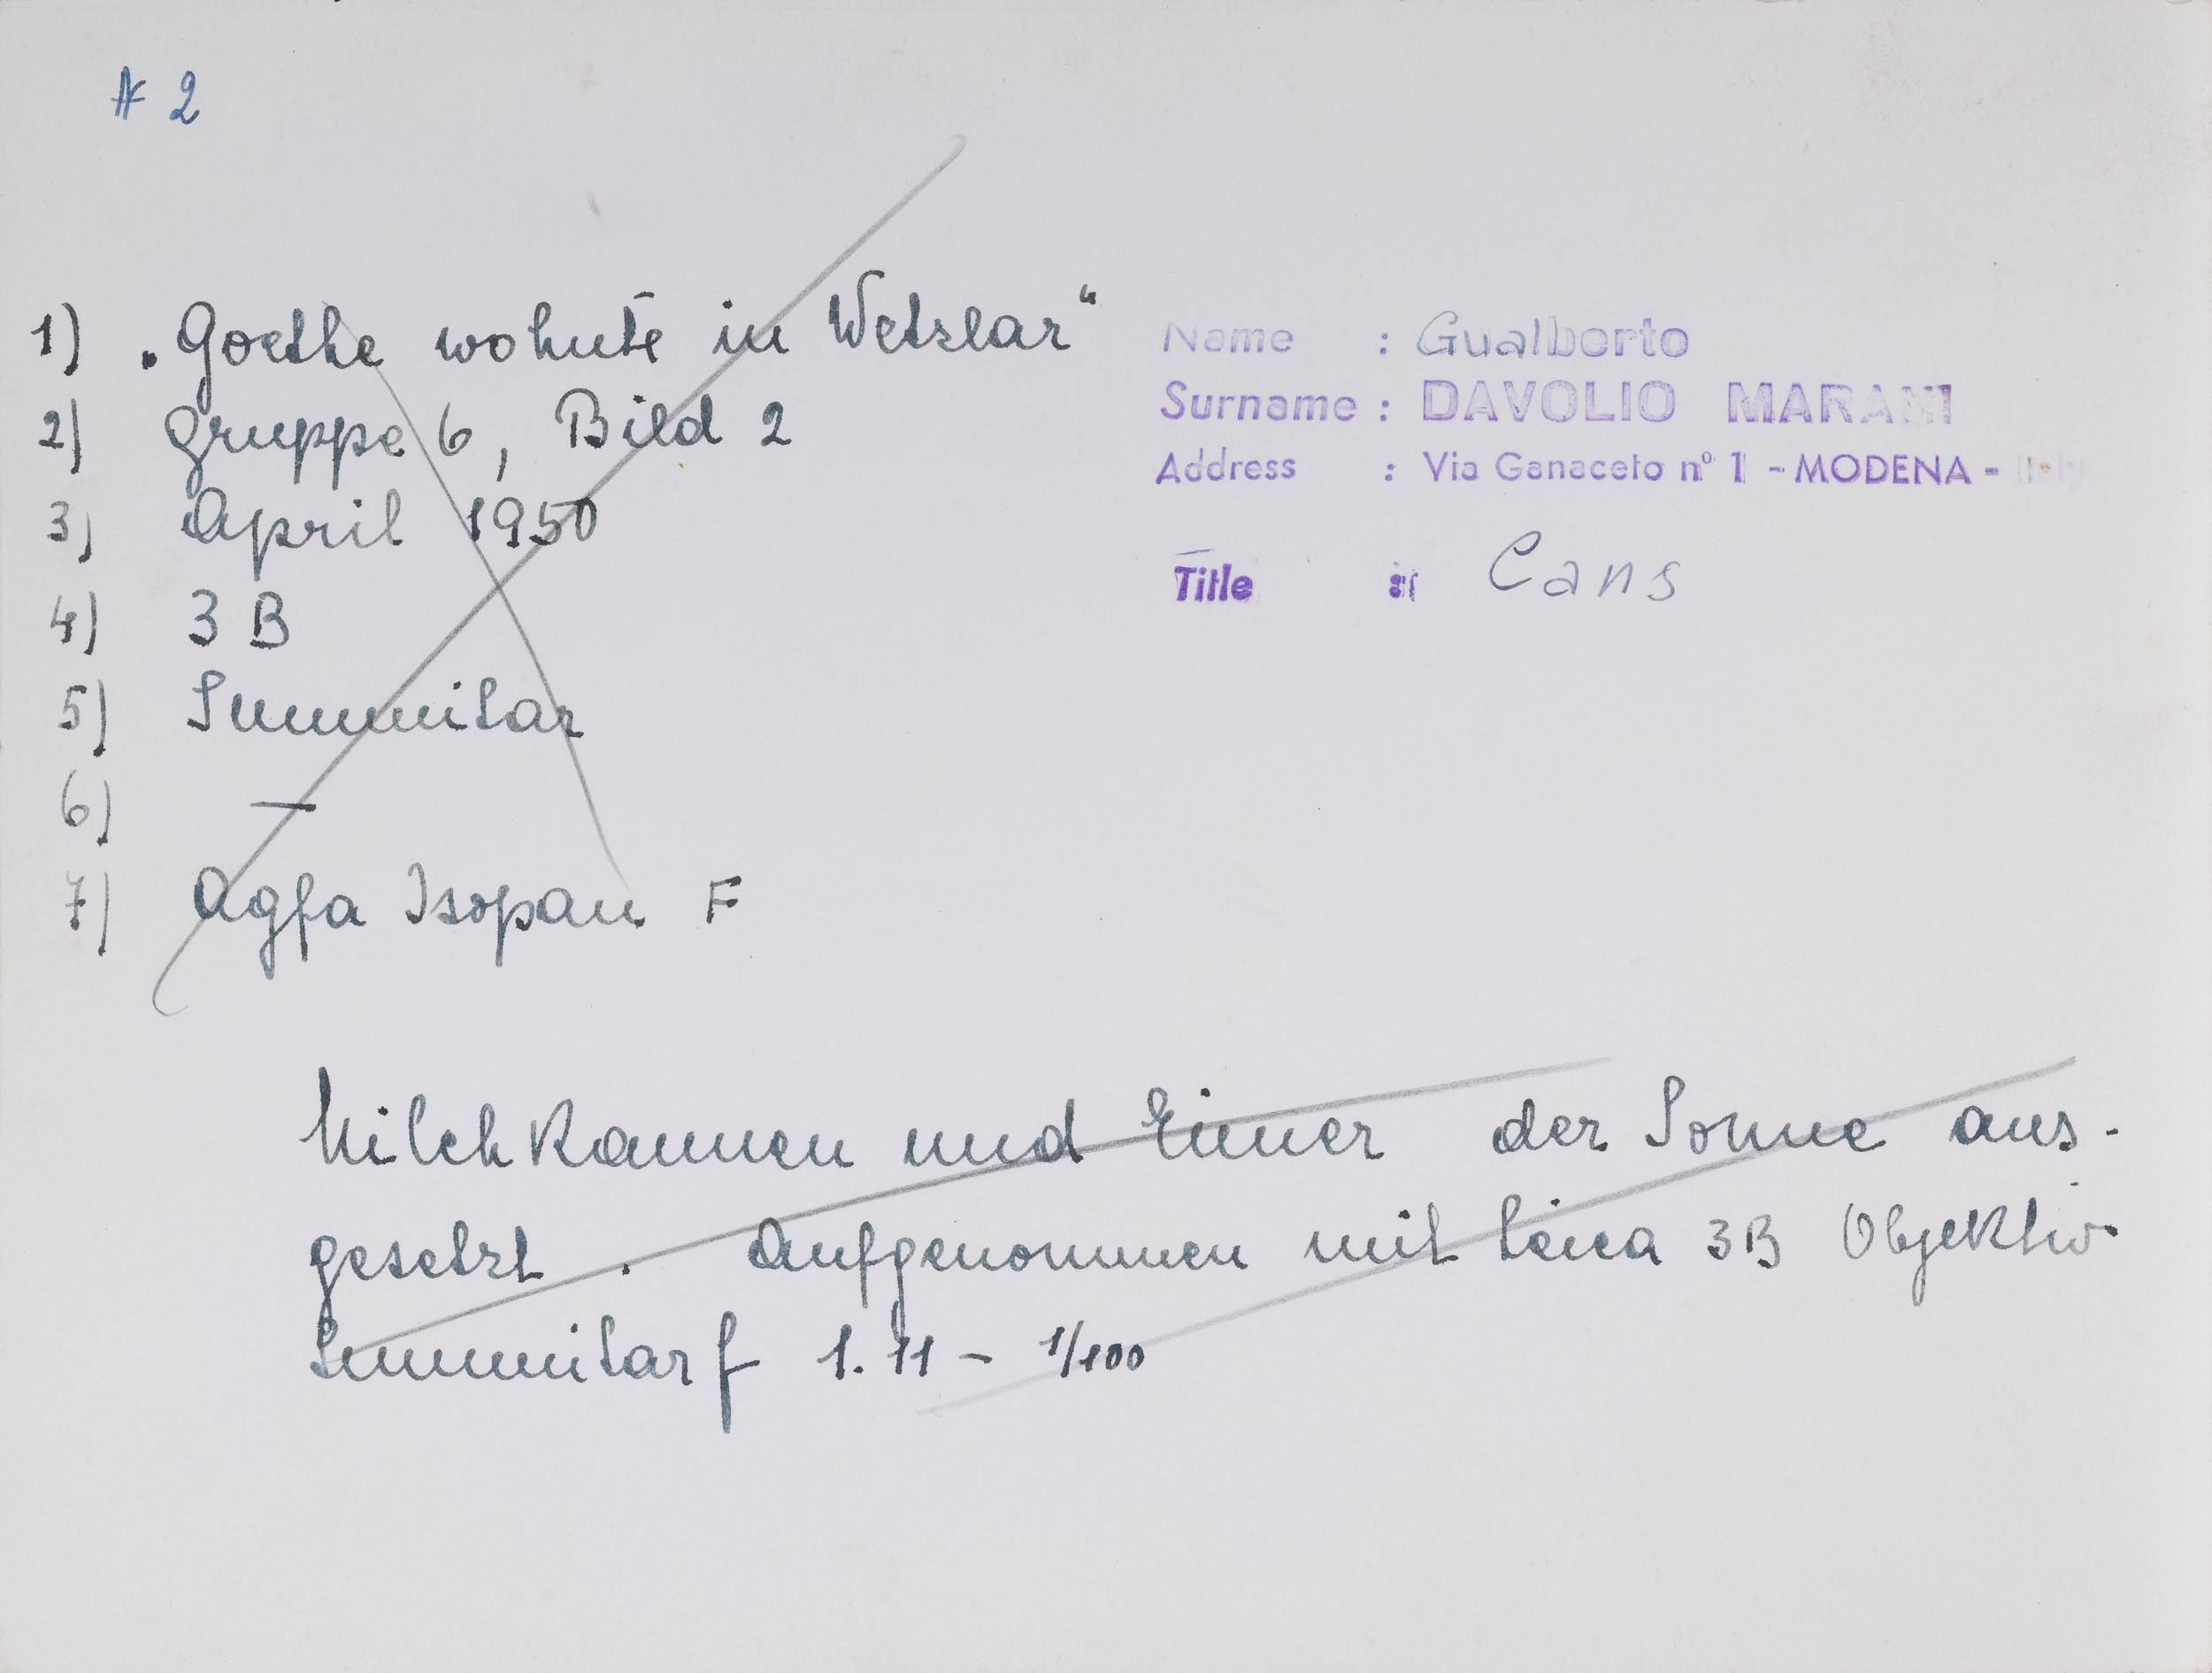 # 2
1) „Goethe wohnte in Wetzlar“
2) Gruppe 6, Bild 2
3) April 1950
4) 3 B
5) Summitar
6) —
7) Agfa Isopan F
Name : Gualberto
Surname : DAVOLIO MARANI
Address : Via Ganaceto n° 1 - MODENA - Italy
Title : Cans
Milchkannen und Eimer der Sonne aus-
gesetzt. Aufgenommen mit Leica 3B Objektiv
Summitar f 1.11 - 1/100